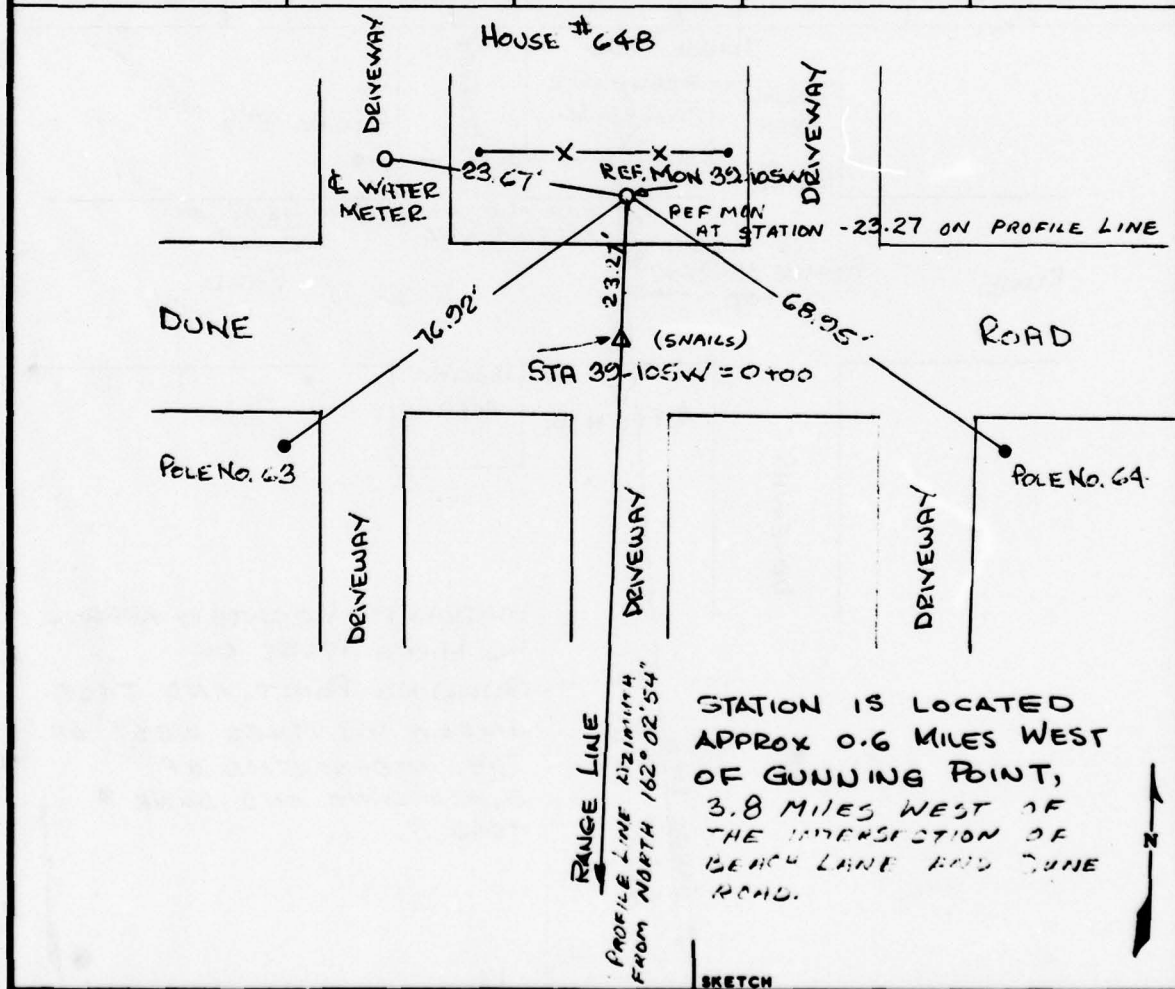 HOUSE #648
DRIVEWAY
DRIVEWAY
23.67'
REF. MON 39-105W
℄ WATER
METER
REF MON
AT STATION -23.27 ON PROFILE LINE
23.27'
DUNE
76.92'
68.95'
ROAD
(SNAILS)
STA 39-105W = 0+00
POLE NO. 63
POLE NO. 64
DRIVEWAY
DRIVEWAY
DRIVEWAY
RANGE LINE
PROFILE LINE AZIMUTH
FROM NORTH 162° 02' 54"
STATION IS LOCATED
APPROX 0.6 MILES WEST
OF GUNNING POINT,
3.8 MILES WEST OF
THE INTERSECTION OF
BEACH LANE AND DUNE
ROAD.
N
SKETCH